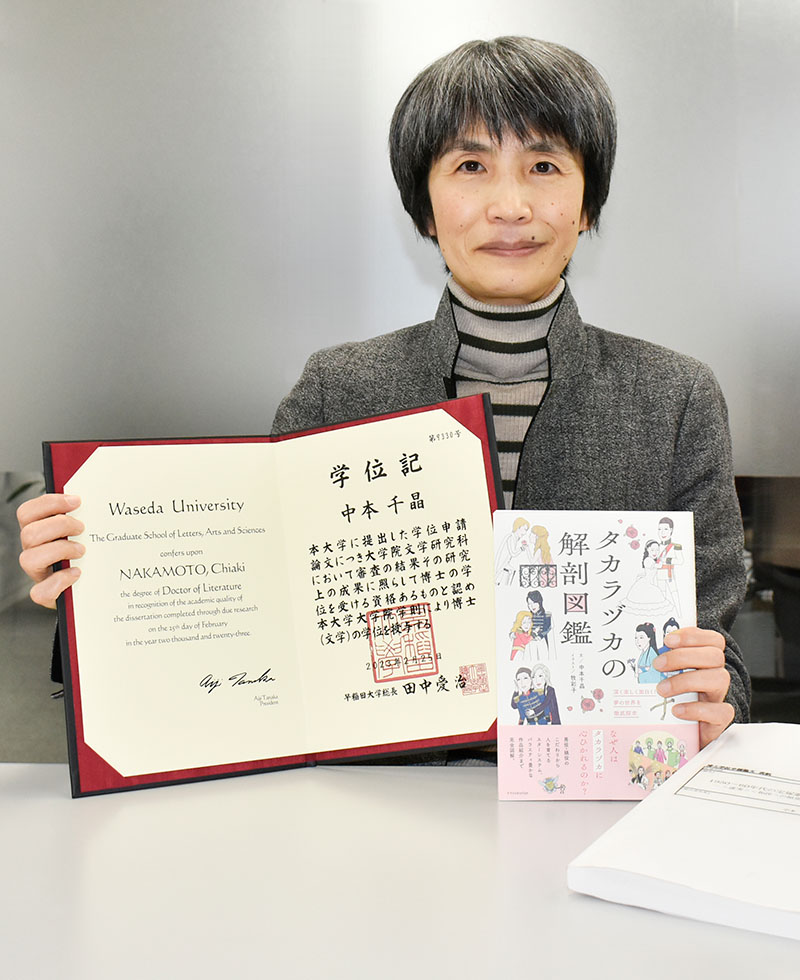 Waseda University
The Graduate School of Letters, Arts and Sciences
confers upon
NAKAMOTO, Chiaki
the degree of Doctor of Literature
in recognition of the academic quality of
the dissertation completed through due research
on the 25th day of February
in the year two thousand and twenty-three.
Aiji Tanaka
Aiji Tanaka
President
第9330号
学位記
中本千晶
本大学に提出した学位申請
論文につき大学院文学研究科
において審査の結果その研究
上の成果に照らして博士の学
位を受ける資格あるものと認め
本大学大学院学則により博士
(文学)の学位を授与する
2023年2月25日
早稲田大学総長 田中愛治
タカラヅカの
解剖図鑑
中本千晶
牧彩子
深く楽しく面白く
夢の世界を
徹底解剖
なぜ人は
タカラヅカに
心ひかれるのか?